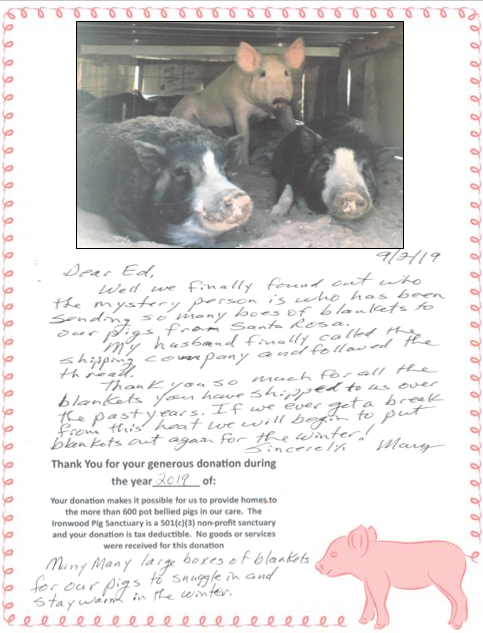 9/2/19
Dear Ed,
Well we finally found out who
the mystery person is who has been
sending so many boes of blankets to
our pigs from Santa Rosa.
My husband finally called the
shipping company and followed the
thread.
Thank you so much for all the
blankets you have shipped to us over
the past years. If we ever get a break
from this heat we will begin to put
blankets out again for the winter!
Sincerely, Mary
Thank You for your generous donation during
the year 2019 of:
Your donation makes it possible for us to provide homes to
the more than 600 pot bellied pigs in our care. The
Ironwood Pig Sanctuary is a 501(c)(3) non-profit sanctuary
and your donation is tax deductible. No goods or services
were received for this donation
Many Many large boxes of blankets
for our pigs to snuggle in and
stay warm in the winter.